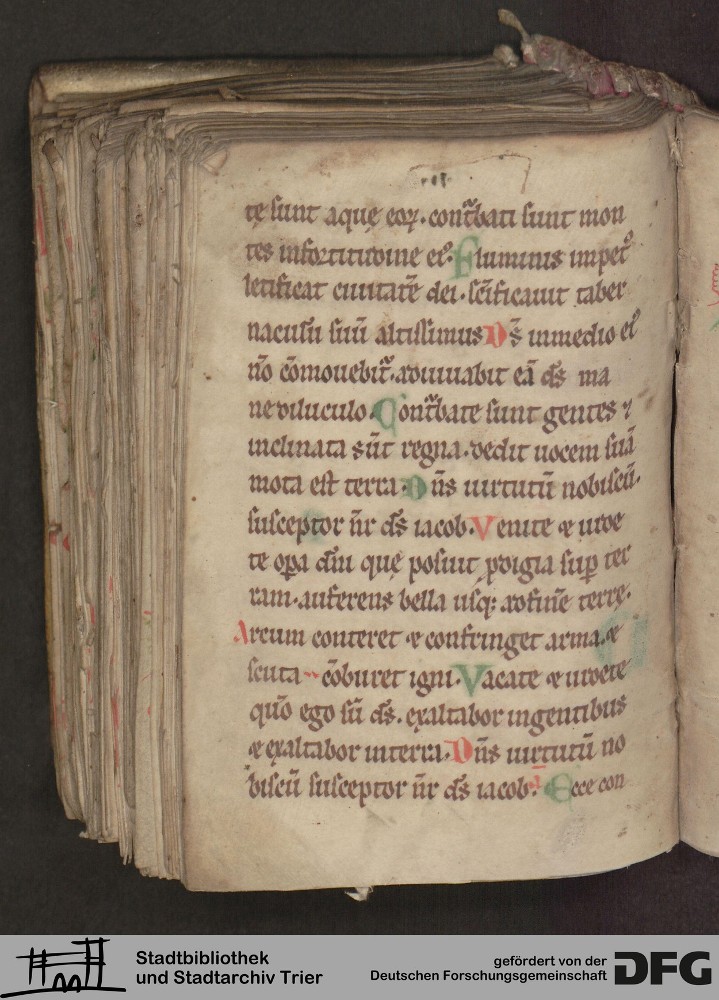 tę sunt aquę eoꝝ · contᷓbati sunt mon
tes infortitudine eiꝰ · Fluminis impetꝰ
letificat ciuitatē dei · scīficauit taber
naculū suū altissimus Ds̄ inmedio eiꝰ
nō cōmouebitᷓ · adiuuabit eā ds̄ ma
ne diluculo · Contᷓbate sunt gentes ⁊
inclinata sūt regna · dedit uocem suā
mota est terra · Dn̄s uirtutū nobiscū ·
susceptor nr̄ ds̄ iacob · Venite & uide
te oꝑa dn̄i quę posuit ꝓdigia suꝑ ter
ram · auferens bella usqꝫ adfinē terrę ·
Arcum conteret & confringet arma · &
scuta cōburet igni · Vacate & uidete
quō ego sū ds̄ · exaltabor ingentibus
& exaltabor interra · Dn̄s uirtutū no
biscū susceptor nr̄ ds̄ iacob · Ecce con
Stadtbibliothek
und Stadtarchiv Trier
gefördert von der
Deutschen Forschungsgemeinschaft
DFG